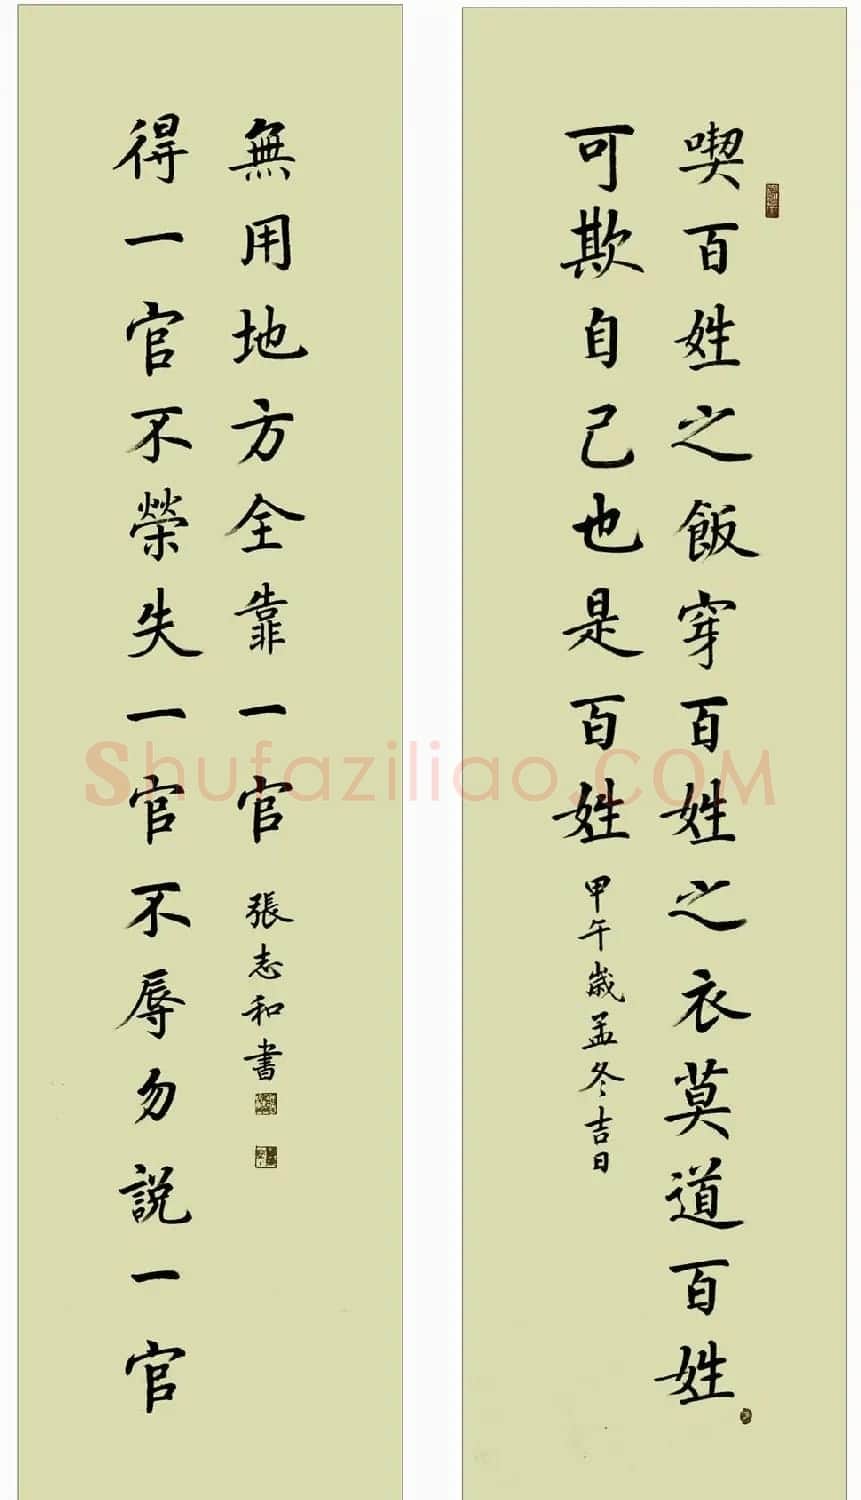 喫百姓之飯穿百姓之衣莫道百姓
可欺自己也是百姓
甲午歲孟冬吉日
得一官不榮失一官不辱勿説一官
無用地方全靠一官
張志和書
Shufaziliao.COM